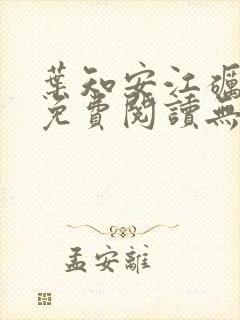 葉知安江礪
免費閱讀無
孟安離